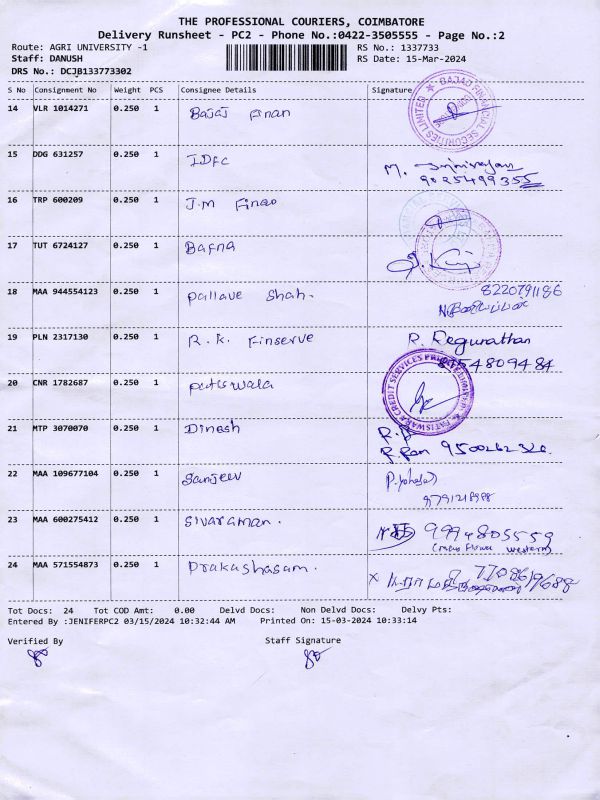 THE PROFESSIONAL COURIERS, COIMBATORE
Delivery Runsheet - PC2 - Phone No.:0422-3505555 - Page No.:2
Route: AGRI UNIVERSITY -1 RS No.: 1337733
Staff: DANUSH RS Date: 15-Mar-2024
DRS No.: DCJB133773302
S No Consignment No Weight PCS Consignee Details Signature
14 VLR 1014271 0.250 1 Bajaj Finan
BAJAJ FINANCIAL SECURITIES LIMITED
15 DDG 631257 0.250 1 IDFC
M.
9025499355
16 TRP 600209 0.250 1 J.M Finao
17 TUT 6724127 0.250 1 Bafna
18 MAA 944554123 0.250 1 Pallave Shah. 8220791186
19 PLN 2317130 0.250 1 R.K. Finserve R. Regunathan
9554809484
20 CNR 1782687 0.250 1 Patiswala
CREDIT SERVICES PRIVATE
21 MTP 3070070 0.250 1 Dinesh
R. Ram 9500262326
22 MAA 109677104 0.250 1 Sanjeev
9791218998
23 MAA 600275412 0.250 1 Sivaraman. 9994805559
24 MAA 571554873 0.250 1 Prakashasam. 7708619688
Tot Docs: 24 Tot COD Amt: 0.00 Delvd Docs: Non Delvd Docs: Delvy Pts:
Entered By :JENIFERPC2 03/15/2024 10:32:44 AM Printed On: 15-03-2024 10:33:14
Verified By Staff Signature